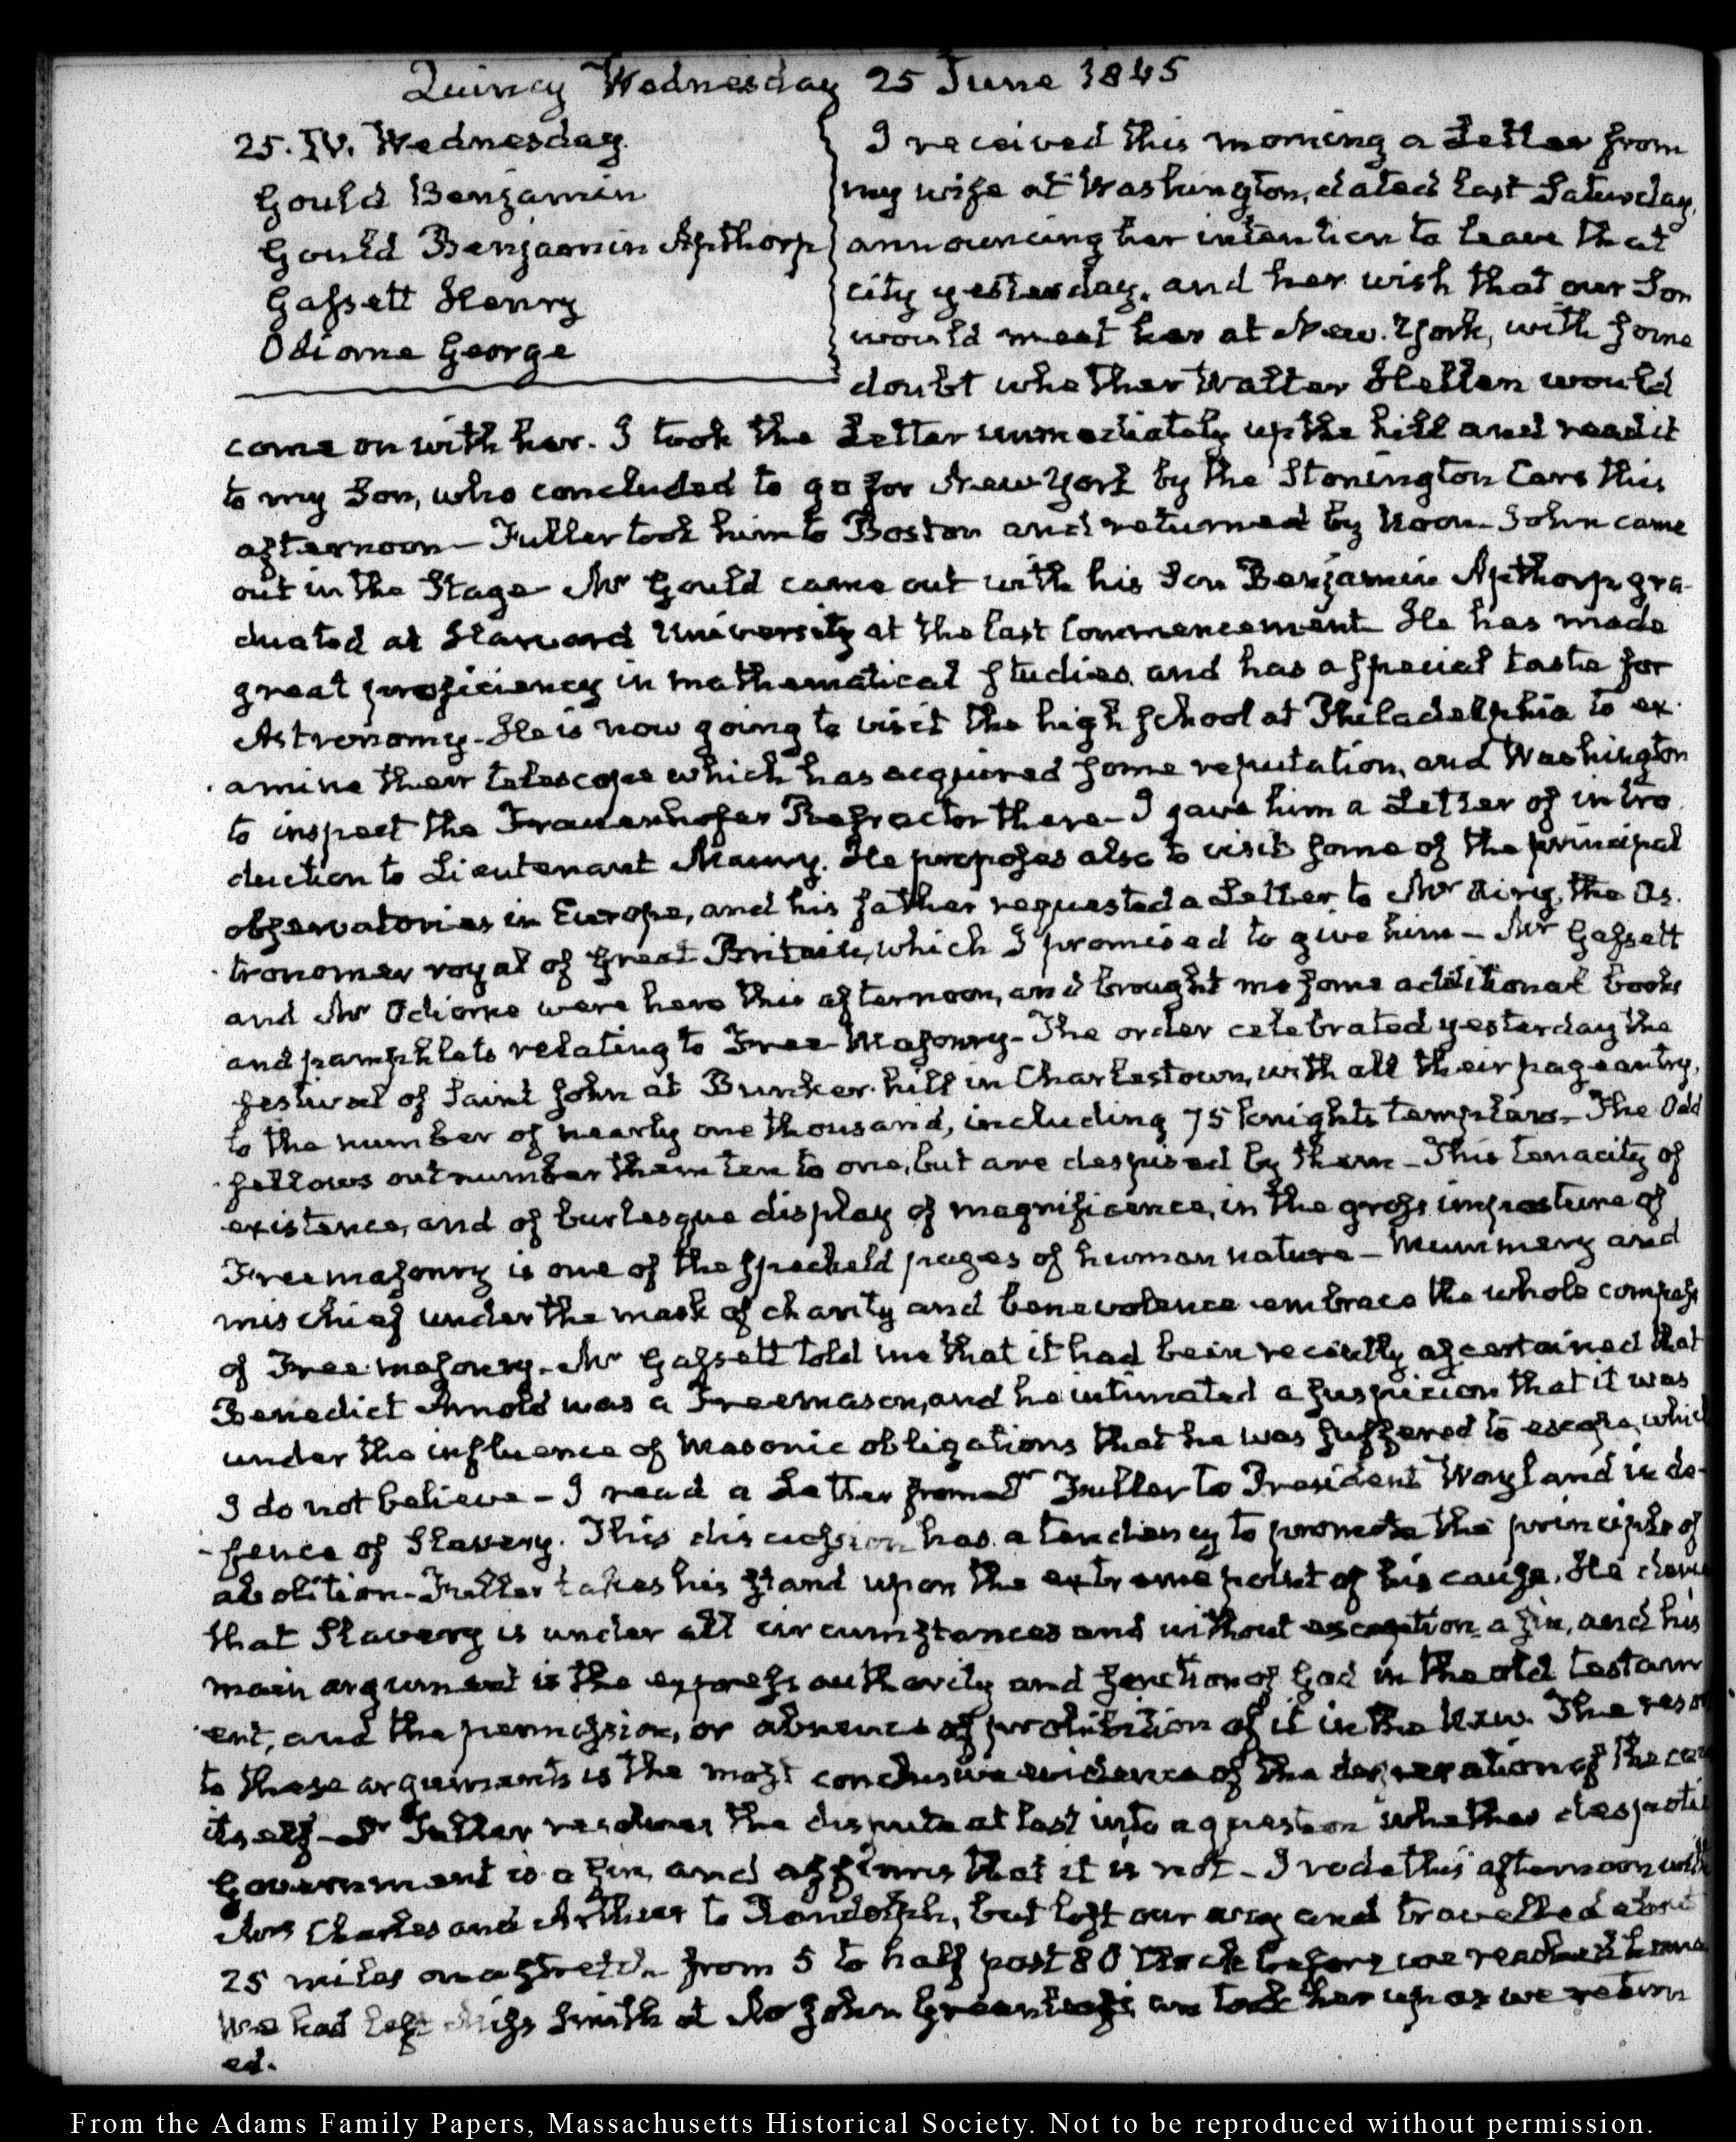 Quincy Wednesday 25 June 1845
25. IV. Wednesday.
Gould Benjamin
Gould Benjamin Apthorp
Gassett Henry
Odiorne George
I received this morning a Letter from
my wife at Washington, dated last Saturday,
announcing her intention to leave that
city yesterday, and her wish that our Son
would meet her at New-York, with some
doubt whether Walter Hellen would
come on with her. I took the Letter immediately up the hill and read it
to my Son, who concluded to go for New York by the Stonington Cars this
afternoon— Fuller took him to Boston and returned by Noon— John came
out in the Stage— Mr Gould came out with his Son Benjamin Apthorp gra-
duated at Harvard University at the last Commencement— He has made
great proficiency in mathematical studies, and has a special taste for
Astronomy— He is now going to visit the high school at Philadelphia to ex-
amine their telescope which has acquired some reputation, and Washington
to inspect the Frauenhofer Refractor there— I gave him a Letter of intro-
duction to Lieutenant Maury. He proposes also to visit some of the principal
observatories in Europe, and his father requested a Letter to Mr Airy, the As-
tronomer royal of Great Britain, which I promised to give him— Mr Gassett
and Mr Odiorne were here this afternoon, and brought me some additional books
and pamphlets relating to Free Masonry— The order celebrated yesterday the
festival of Saint John at Bunker-hill in Charlestown, with all their pageantry,
to the number of nearly one thousand, including 75 Knights templars— The Odd
fellows outnumber them ten to one, but are despised by them— This tenacity of
existence, and of burlesque display of magnificence, in the gross imposture of
Freemasonry is one of the speckeld pages of human nature— Mummery and
mischief under the mask of charity and benevolence embrace the whole compass
of Freemasonry— Mr Gassett told me that it had been recently ascertained that
Benedict Arnold was a Freemason, and he intimated a suspicion that it was
under the influence of Masonic obligations that he was suffered to escape, which
I do not believe— I read a Letter from Dr Fuller to President Wayland in de-
fence of Slavery. This discussion has a tendency to promote the principle of
abolition— Fuller takes his stand upon the extreme point of his cause. He
that Slavery is under all circumstances and without exception a sin, and his
main argument is the express authority and sanction of God in the old testam-
ent, and the permission, or absence of prohibition of it in the New. The
to these arguments is the most conclusive evidence of the desperation of the
itself— Dr Fuller resolves the dispute at last into a question whether
Government is a sin, and affirms that it is not— I rode this afternoon with
Mrs Charles and Arthur to Randolph, but lost our way and travelled about
25 miles on a stretch from 5 to half past 8 O'Clock before we reached home
We had left Miss Smith at Mr John Greenleaf's, we took her up as we return-
ed.
From the Adams Family Papers, Massachusetts Historical Society. Not to be reproduced without permission.